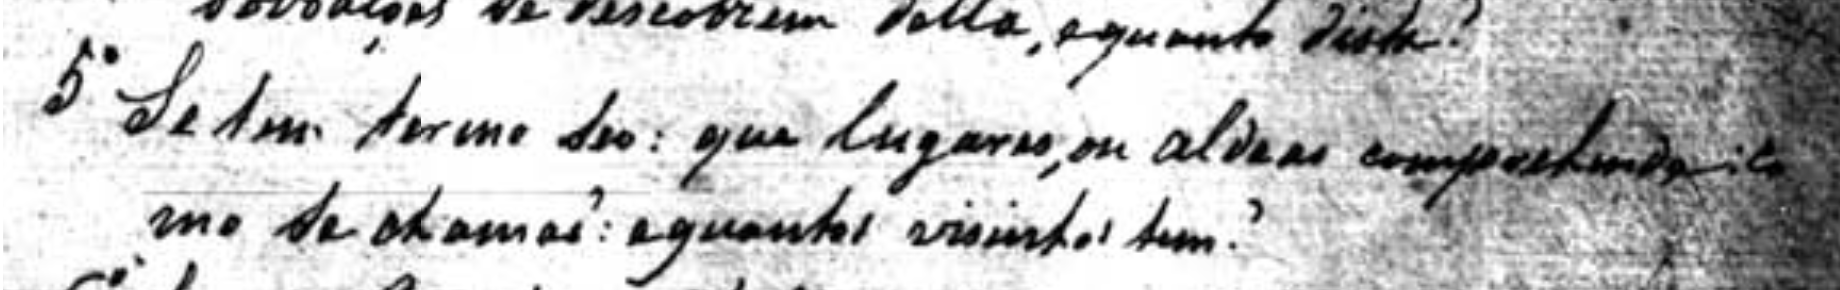 povoações se descobrem della, e quanto dista?
5º Se tem termo seo: que lugares, ou aldeas comprehende: co
mo se chamaõ: e quantos visinhos tem?